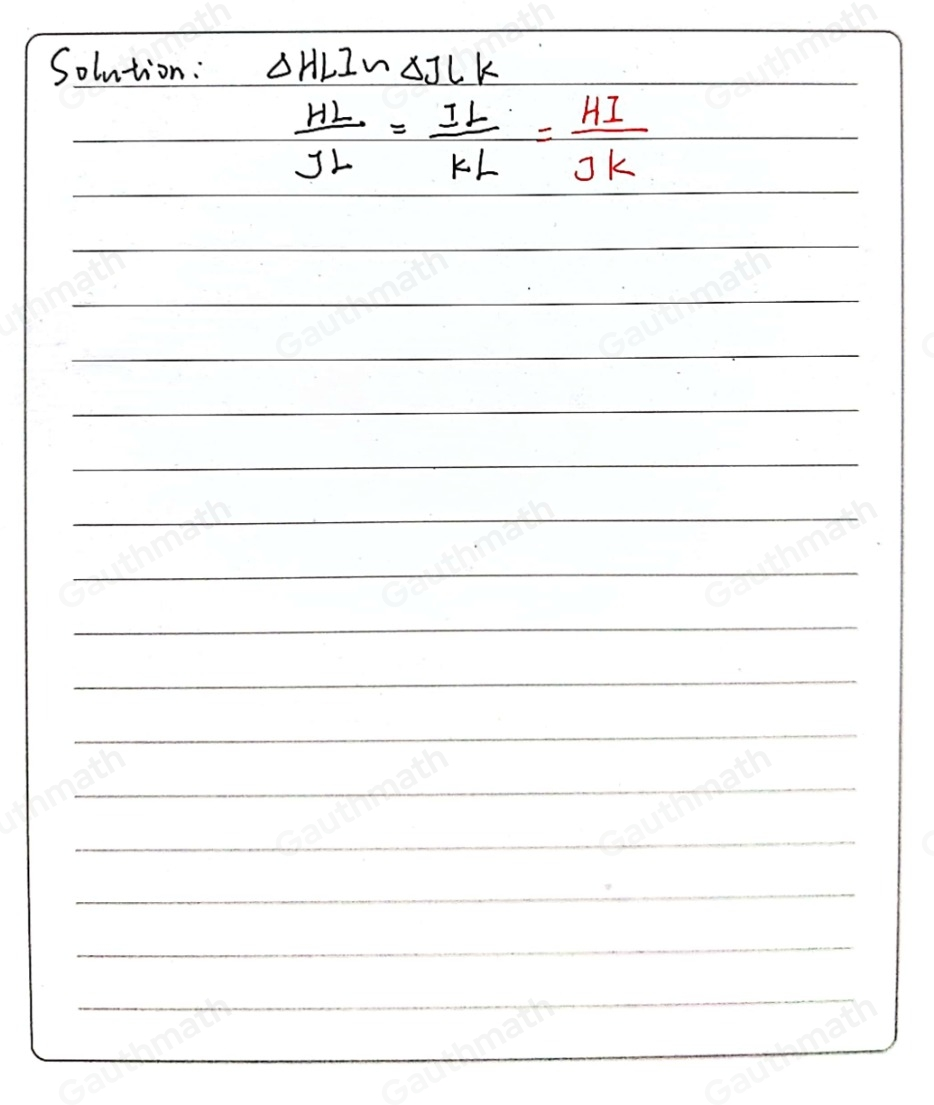 Solution: △HLI ∼ △JLK
HL/JL = IL/KL = HI/JK
Gauthmath